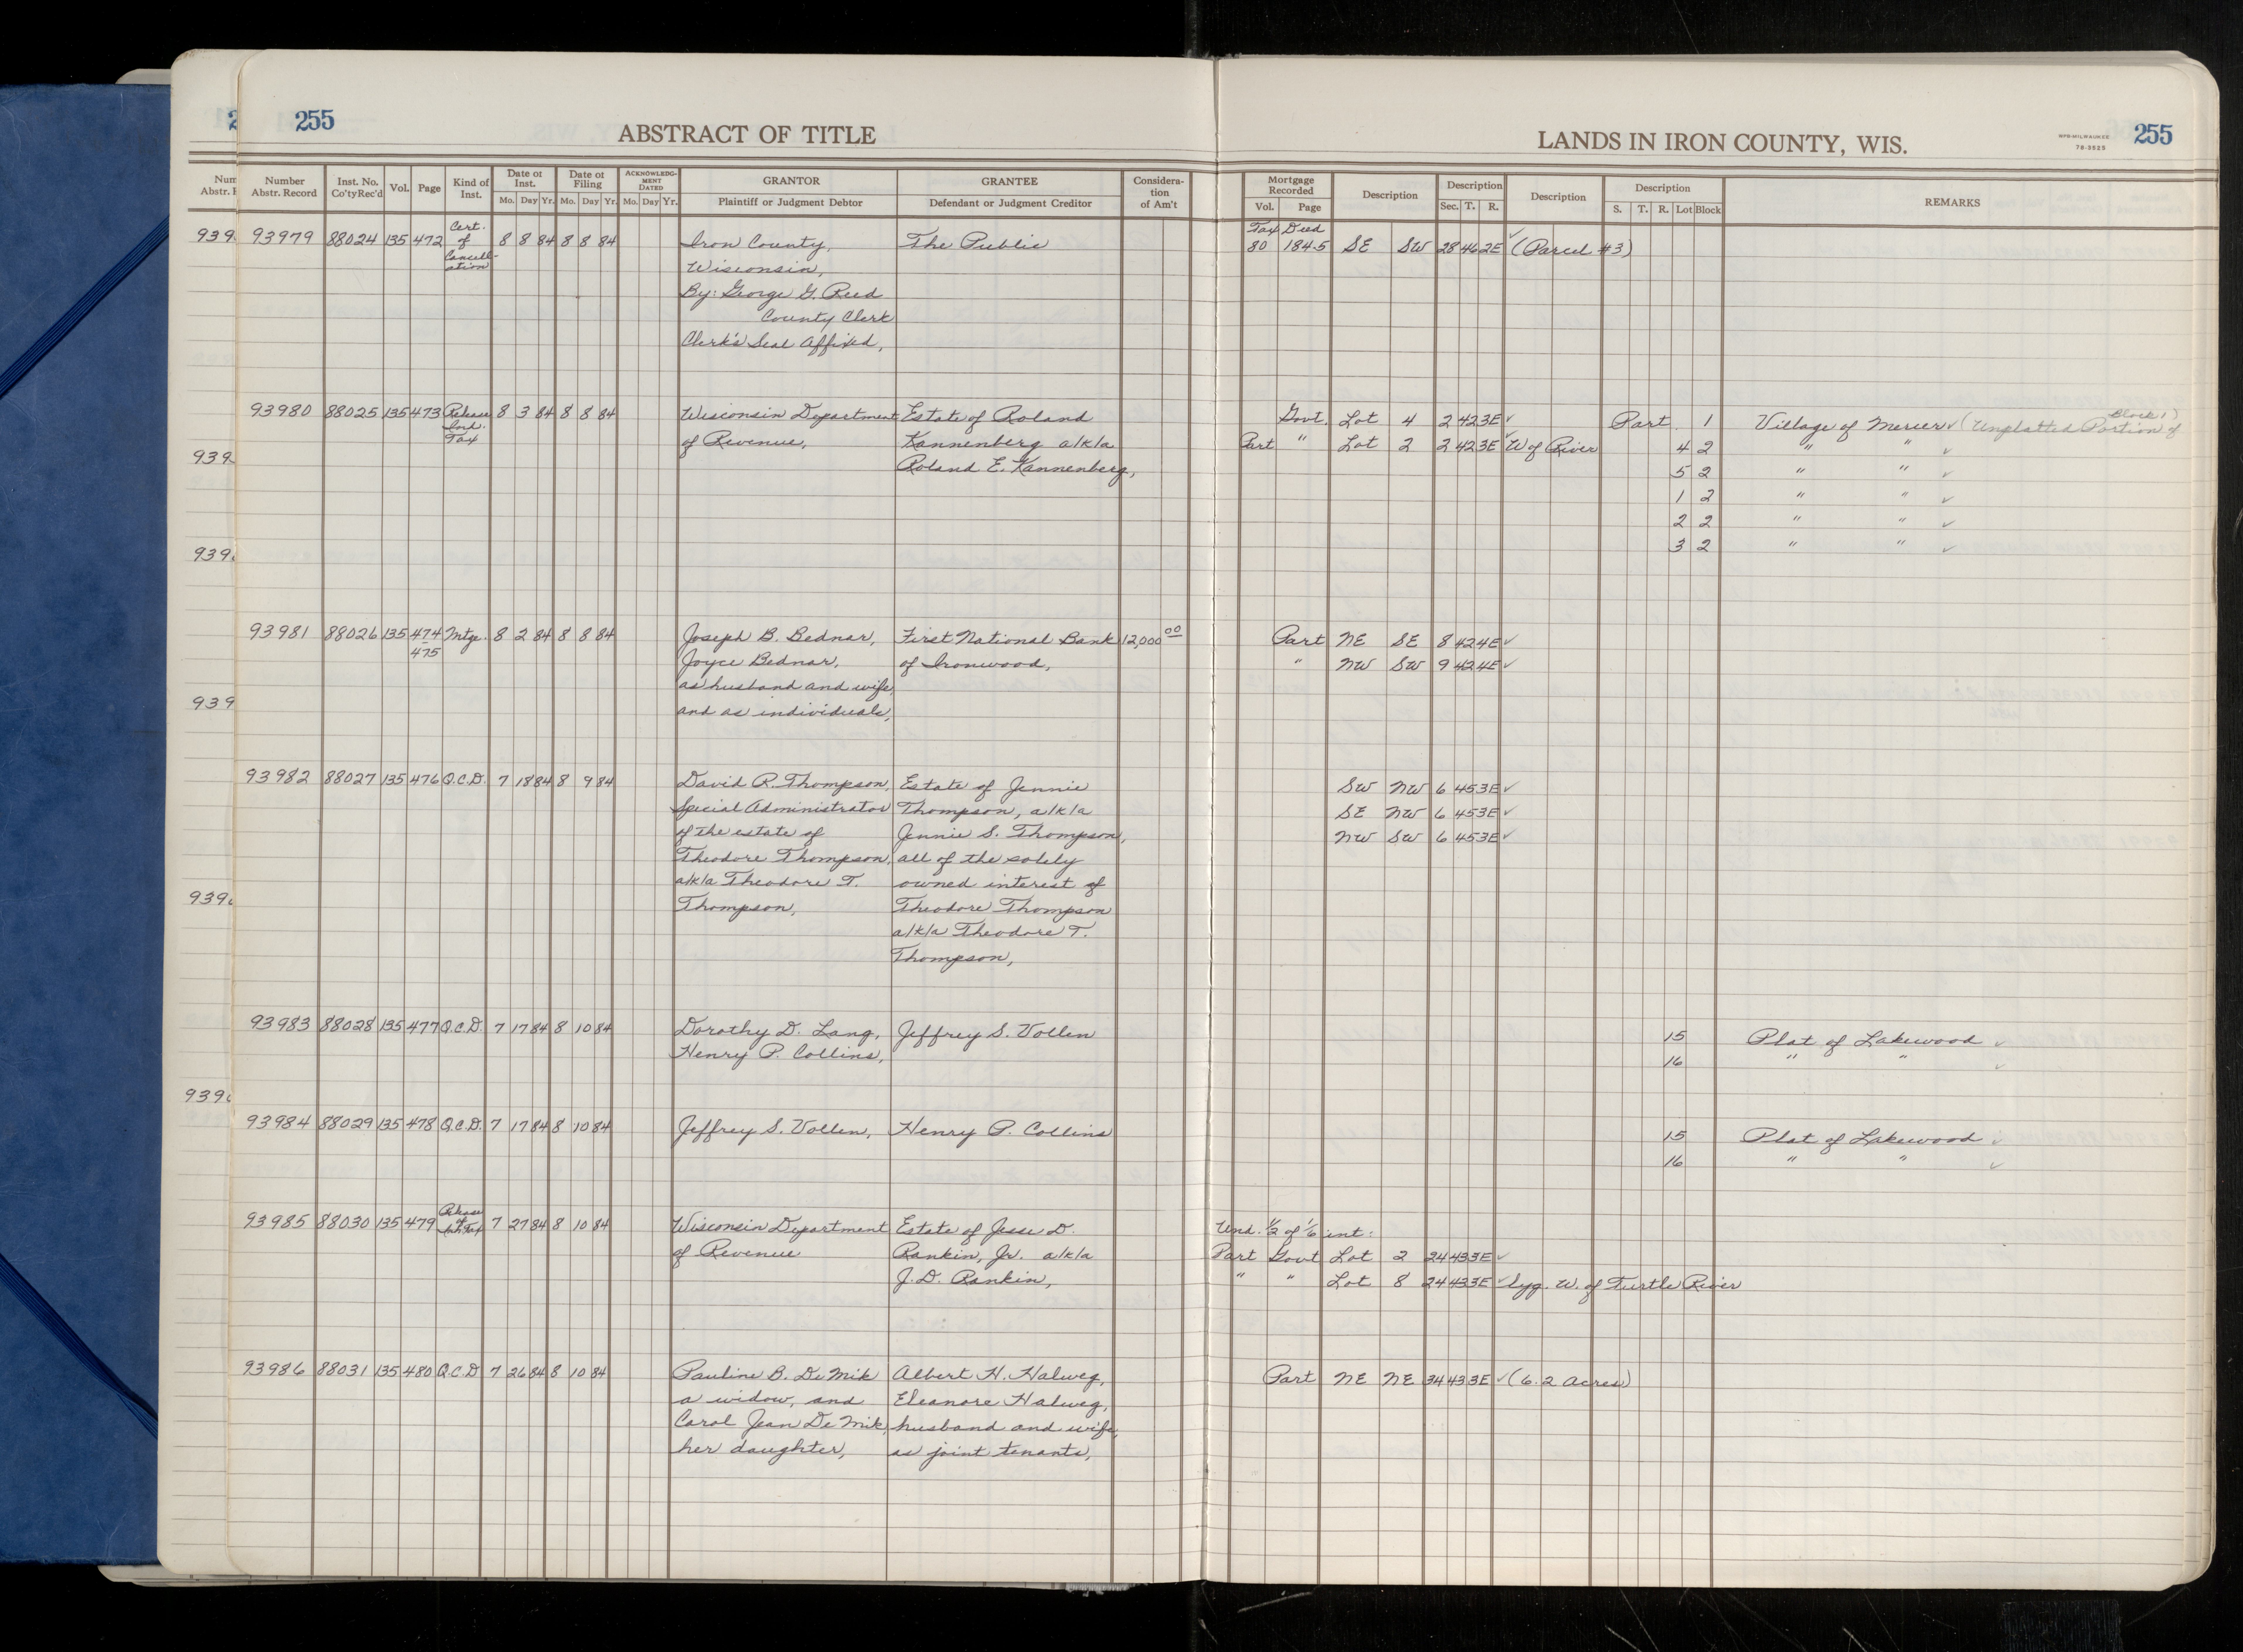 255
ABSTRACT OF TITLE
LANDS IN IRON COUNTY, WIS.
WPB-MILWAUKEE
78-3525
255
Number Abstr. Record | Inst. No. Co'tyRec'd | Vol. | Page | Kind of Inst. | Date of Inst. Mo. Day Yr. | Date of Filing Mo. Day Yr. | ACKNOWLEDGMENT DATED Mo. Day Yr. | GRANTOR Plaintiff or Judgment Debtor | GRANTEE Defendant or Judgment Creditor | Consideration of Am't | Mortgage Recorded Vol. Page | Description | Description Sec. T. R. | Description | Description S. T. R. Lot Block | REMARKS
93979 88024 135 472 Cert. of Cancellation 8 8 84 8 8 84 Iron County, The Public Tax Deed 80 184-5 SE SW 28 46 2E ✓ (Parcel #3)
Wisconsin,
By: George G. Reed
County Clerk
Clerk's Seal Affixed,
93980 88025 135 473 Release Tax 8 3 84 8 8 84 Wisconsin Department Estate of Roland Govt. Lot 4 2 42 3E ✓ Part 1 Village of Mercer ✓ (Unplatted Portion of Block 1)
of Revenue, Kannenberg a/k/a Part " Lot 2 2 42 3E ✓ W of River 4 2 " " ✓
Roland E. Kannenberg, 5 2 " " ✓
1 2 " " ✓
2 2 " " ✓
3 2 " " ✓
93981 88026 135 474 475 Mtge. 8 2 84 8 8 84 Joseph B. Bednar, First National Bank 12,000 00 Part NE SE 8 42 4E ✓
Joyce Bednar, of Ironwood, " NW SW 9 42 4E ✓
as husband and wife,
and as individuals,
93982 88027 135 476 Q.C.D. 7 18 84 8 9 84 David R. Thompson, Estate of Jennie SW NW 6 45 3E ✓
Special Administrator Thompson, a/k/a SE NW 6 45 3E ✓
of the estate of Jennie S. Thompson, NW SW 6 45 3E ✓
Theodore Thompson, all of the solely
a/k/a Theodore T. owned interest of
Thompson, Theodore Thompson
a/k/a Theodore T.
Thompson,
93983 88028 135 477 Q.C.D. 7 17 84 8 10 84 Dorothy D. Lang, Jeffrey S. Vollen 15 Plat of Lakewood ✓
Henry P. Collins, 16 " " ✓
93984 88029 135 478 Q.C.D. 7 17 84 8 10 84 Jeffrey S. Vollen, Henry P. Collins 15 Plat of Lakewood ✓
16 " " ✓
93985 88030 135 479 Release of 7 27 84 8 10 84 Wisconsin Department Estate of Jesse D. Und. 1/2 of 1/6 int:
of Revenue Rankin, Jr. a/k/a Part Govt Lot 2 24 43 3E ✓
J.D. Rankin, " " Lot 8 24 43 3E ✓ lyg. W. of Turtle River
93986 88031 135 480 Q.C.D 7 26 84 8 10 84 Pauline B. DeMik Albert H. Halweg, Part NE NE 34 43 3E ✓ (6.2 Acres)
a widow, and Eleanore Halweg,
Carol Jean DeMik, husband and wife,
her daughter, as joint tenants,